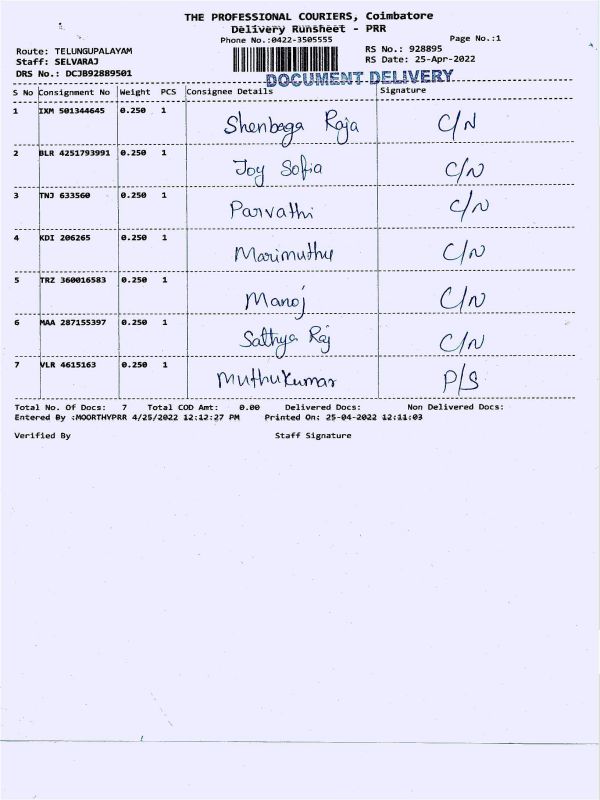 THE PROFESSIONAL COURIERS, Coimbatore
Delivery Runsheet - PRR
Phone No.:0422-3505555
Page No.:1
Route: TELUNGUPALAYAM
RS No.: 928895
Staff: SELVARAJ
RS Date: 25-Apr-2022
DRS No.: DCJB92889501
DOCUMENT DELIVERY
S No Consignment No Weight PCS Consignee Details Signature
1 IXM 501344645 0.250 1 Shenbaga Raja C/N
2 BLR 4251793991 0.250 1 Joy Sofia C/N
3 TNJ 633560 0.250 1 Parvathi C/N
4 KDI 206265 0.250 1 Marimuthu C/N
5 TRZ 360016583 0.250 1 Manoj C/N
6 MAA 287155397 0.250 1 Sathya Raj C/N
7 VLR 4615163 0.250 1 Muthukumar P/S
Total No. Of Docs: 7 Total COD Amt: 0.00 Delivered Docs: Non Delivered Docs:
Entered By :MOORTHYPRR 4/25/2022 12:12:27 PM Printed On: 25-04-2022 12:11:03
Verified By Staff Signature